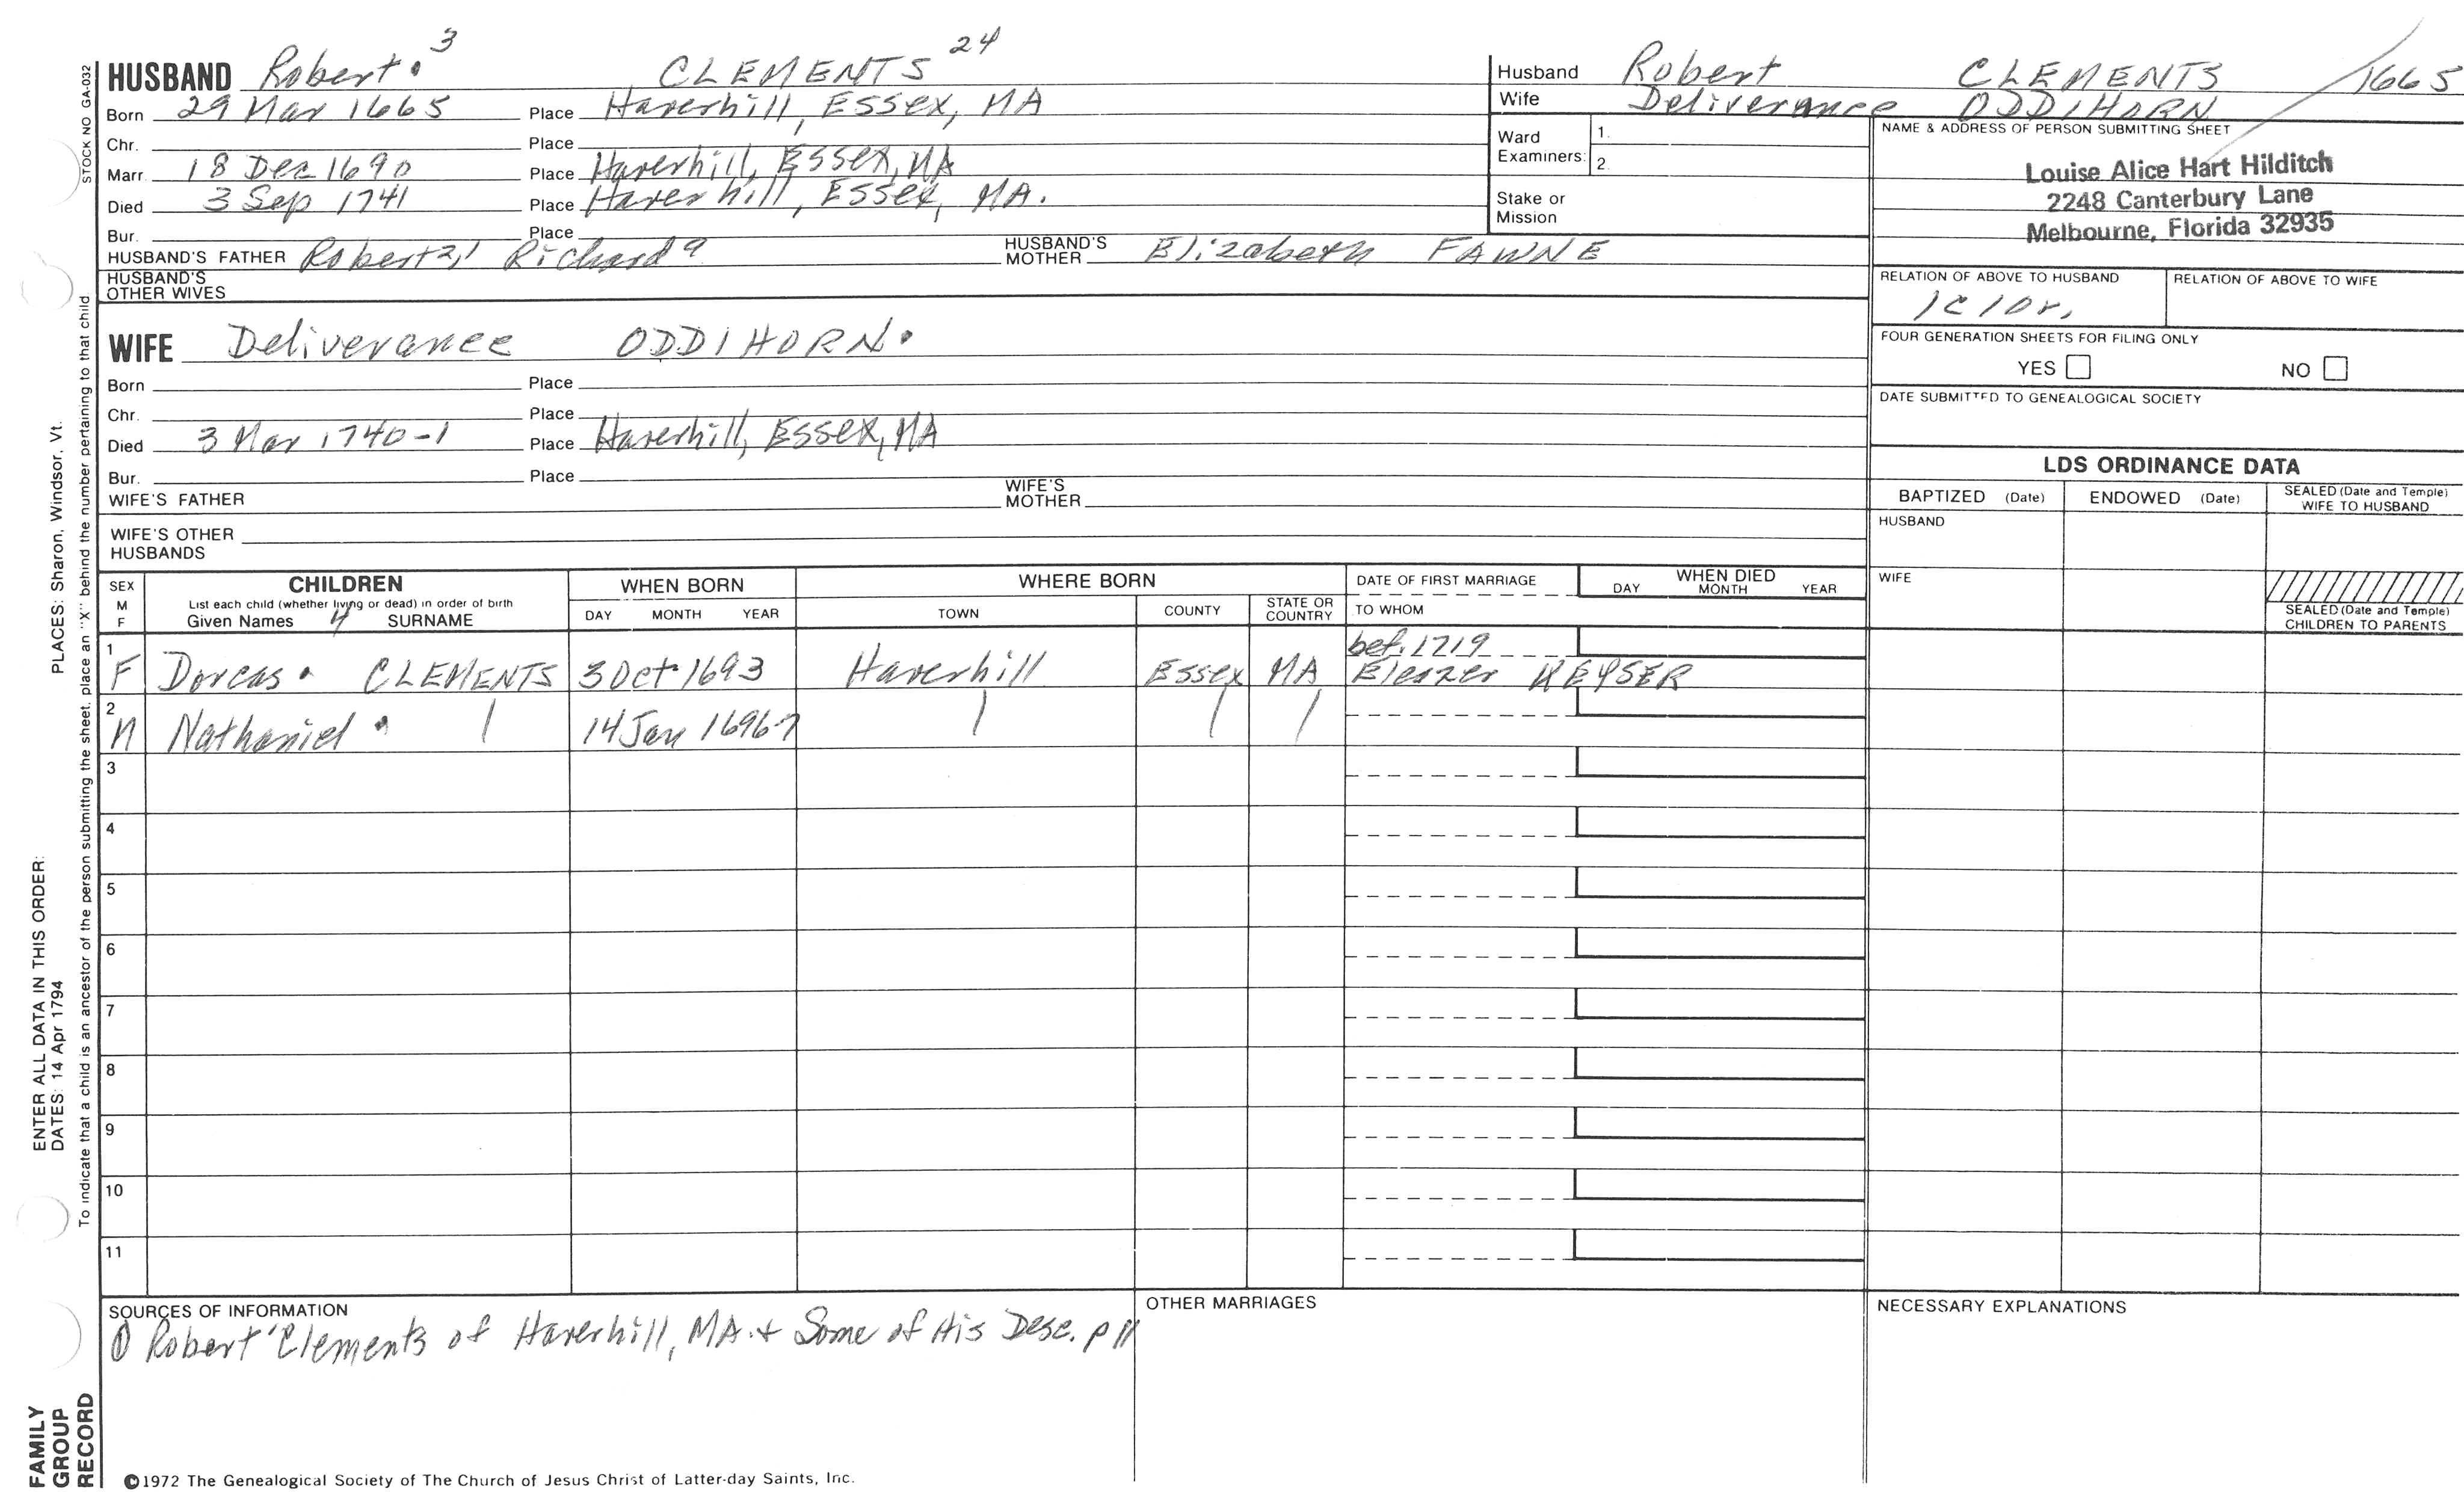 STOCK NO GA-032
HUSBAND Robert. 3 CLEMENTS 24
Born 29 Mar 1665 Place Haverhill, Essex, MA
Chr. Place
Marr. 18 Dec 1690 Place Haverhill, Essex, MA
Died 3 Sep 1741 Place Haverhill, Essex, MA.
Bur. Place
HUSBAND'S FATHER Robert 2,1 Richard a HUSBAND'S MOTHER Elizabeth FAWNE
HUSBAND'S OTHER WIVES
Husband Robert CLEMENTS 1665
Wife Deliverance ODDIHORN
Ward Examiners: 1.
2.
Stake or Mission
NAME & ADDRESS OF PERSON SUBMITTING SHEET
Louise Alice Hart Hilditch
2248 Canterbury Lane
Melbourne, Florida 32935
RELATION OF ABOVE TO HUSBAND RELATION OF ABOVE TO WIFE
1c 10r.
FOUR GENERATION SHEETS FOR FILING ONLY
YES NO
DATE SUBMITTED TO GENEALOGICAL SOCIETY
WIFE Deliverance ODDIHORN.
Born Place
Chr. Place
Died 3 Mar 1740-1 Place Haverhill, Essex, MA
Bur. Place
WIFE'S FATHER WIFE'S MOTHER
WIFE'S OTHER HUSBANDS
LDS ORDINANCE DATA
BAPTIZED (Date) ENDOWED (Date) SEALED (Date and Temple) WIFE TO HUSBAND
HUSBAND
WIFE
SEALED (Date and Temple) CHILDREN TO PARENTS
SEX M F CHILDREN WHEN BORN WHERE BORN DATE OF FIRST MARRIAGE WHEN DIED
List each child (whether living or dead) in order of birth
Given Names 4 SURNAME DAY MONTH YEAR TOWN COUNTY STATE OR COUNTRY TO WHOM DAY MONTH YEAR
1 bef. 1719
F Dorcas. CLEMENTS 3 Oct 1693 Haverhill Essex MA Eleazer KEYSER
2
M Nathaniel. | 14 Jan 1696-7 | | |
3
4
5
6
7
8
9
10
11
SOURCES OF INFORMATION
① Robert Clements of Haverhill, MA. + Some of His Desc. p 11
OTHER MARRIAGES
NECESSARY EXPLANATIONS
©1972 The Genealogical Society of The Church of Jesus Christ of Latter-day Saints, Inc.
FAMILY GROUP RECORD
ENTER ALL DATA IN THIS ORDER:
DATES: 14 Apr 1794 PLACES: Sharon, Windsor, Vt.
To indicate that a child is an ancestor of the person submitting the sheet, place an "X" behind the number pertaining to that child.